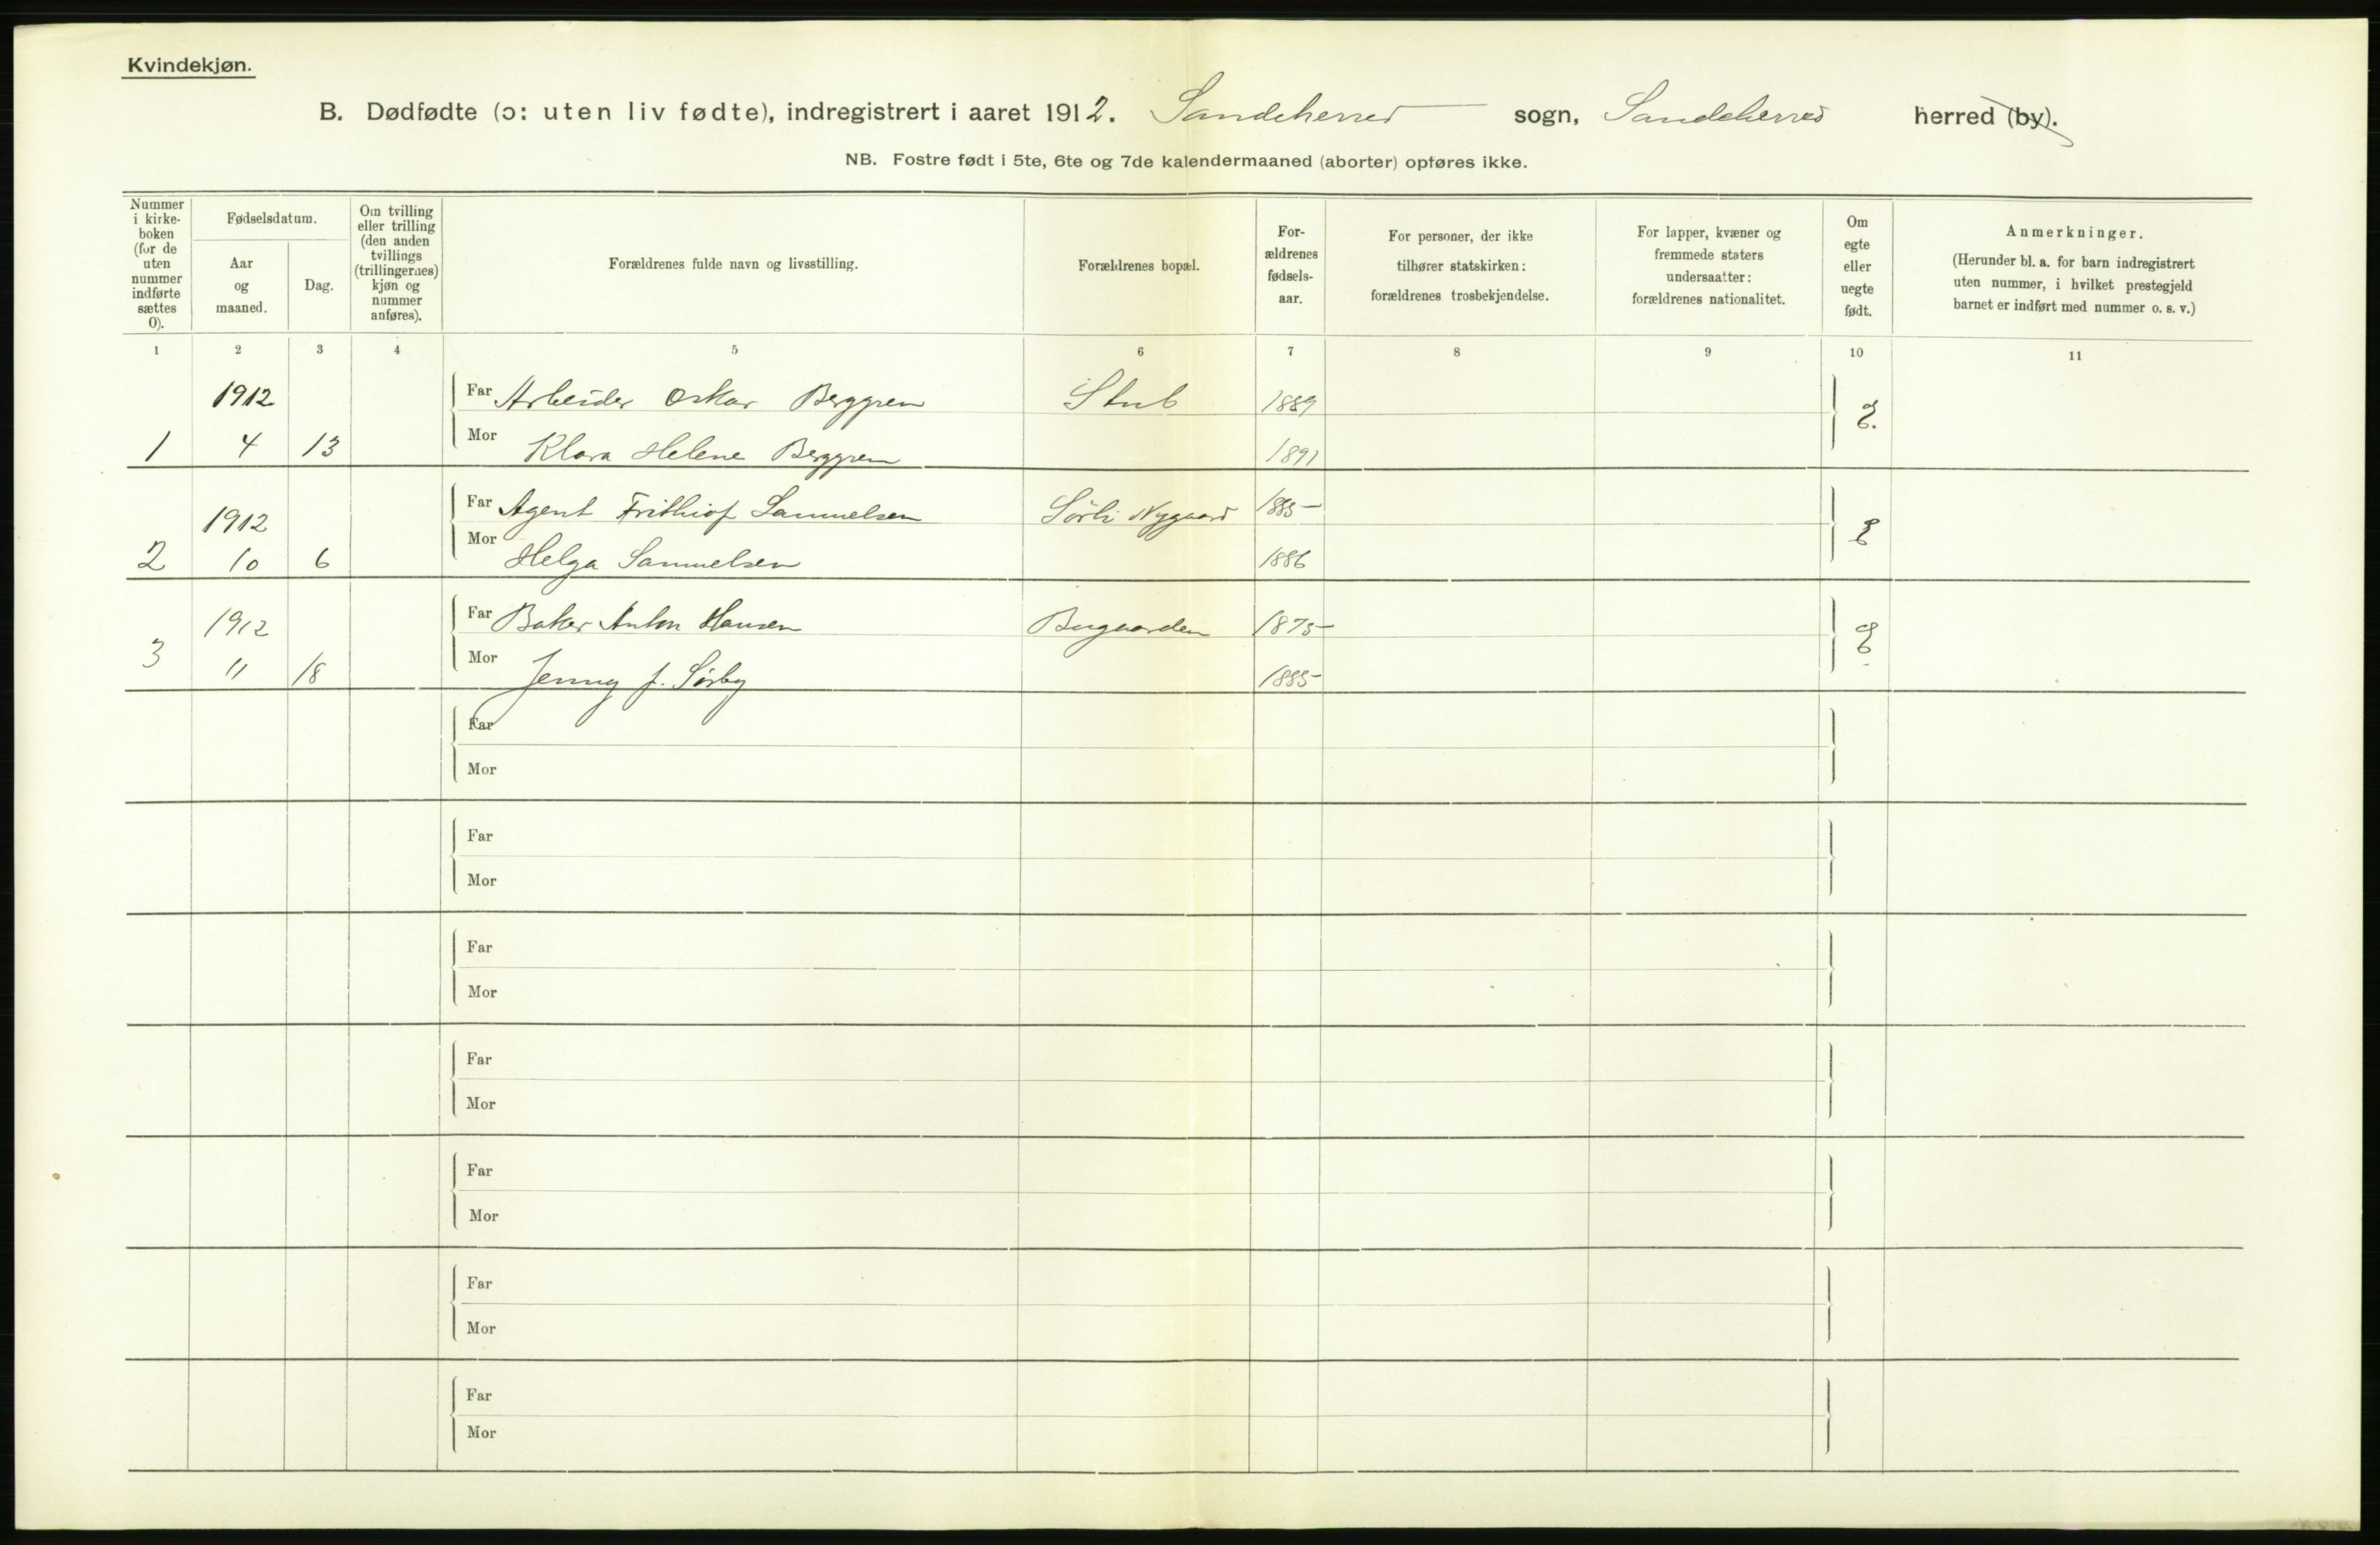 Kvindekjøn.
B. Dødfødte (ɔ: uten liv fødte), indregistrert i aaret 1912. Sandeherred sogn, Sandeherred herred (by).
NB. Fostre født i 5te, 6te og 7de kalendermaaned (aborter) opføres ikke.
Nummer i kirke- boken (for de uten nummer indførte sættes 0).
Fødselsdatum.
Aar og maaned.
Dag.
Om tvilling eller trilling (den anden tvillings (trillingernes) kjøn og nummer anføres).
Forældrenes fulde navn og livsstilling.
Forældrenes bopæl.
For- ældrenes fødsels- aar.
For personer, der ikke tilhører statskirken: forældrenes trosbekjendelse.
For lapper, kvæner og fremmede staters undersaatter: forældrenes nationalitet.
Om egte eller uegte født.
Anmerkninger.
(Herunder bl. a. for barn indregistrert uten nummer, i hvilket prestegjeld barnet er indført med nummer o. s. v.)
1 2 3 4 5 6 7 8 9 10 11
1912 Far Arbeider Oskar Berggren Stub 1889 E.
1 4 13 Mor Klara Helene Berggren 1891
1912 Far Agent Frithiof Samuelsen Sørli Nygaard 1885 E
2 10 6 Mor Helga Samuelsen 1886
1912 Far Baker Anton Hansen Bugaarden 1875 E
3 11 18 Mor Jenny f. Sørby 1885
Far
Mor
Far
Mor
Far
Mor
Far
Mor
Far
Mor
Far
Mor
Far
Mor